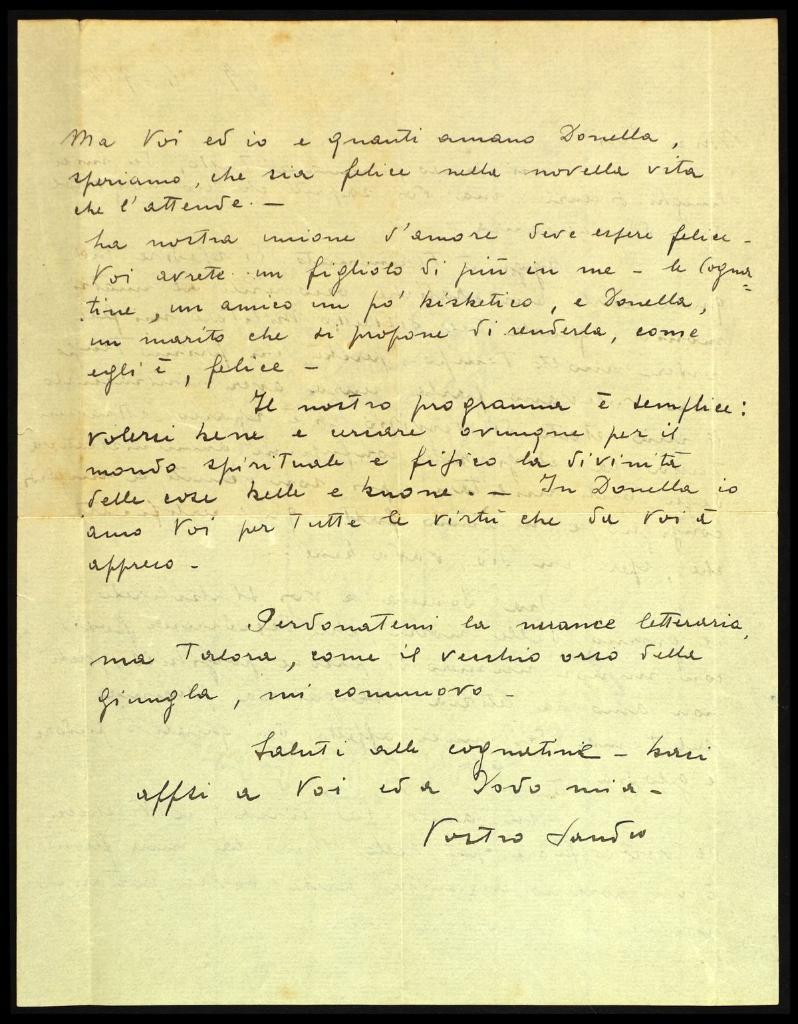 Ma Voi ed io e quanti amano Donella,
speriamo, che sia felice nella novella vita
che l'attende. —
La nostra unione d'amore deve essere felice -
Voi avrete un figliolo di più in me - le Cogna=
tine, un amico un po' bisbetico, e Donella,
un marito che si propone di renderla, come
egli è, felice -
Il nostro programma è semplice:
volersi bene e cercare ovunque per il
mondo spirituale e fisico la divinità
delle cose belle e buone. - In Donella io
amo Voi per tutte le virtù che da Voi à
appreso -
Perdonatemi la nuance letteraria,
ma talora, come il vecchio orso della
giungla, mi commuovo -
Saluti alle cognatine - baci
affti a Voi ed a Dodo mia -
Vostro Sandro